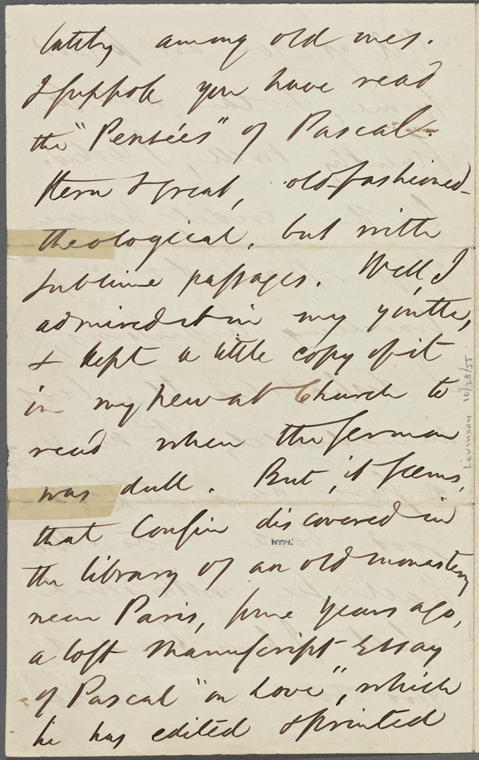 lately among old ones.
I suppose you have read
the "Pensées" of Pascal.
stern & great, old-fashioned
theological, but with
sublime passages. Well, I
admired it in my youth,
& kept a little copy of it
in my pew at Church to
read when the sermon
was dull. But, it seems,
that Cousin discovered in
the library of an old monastery
near Paris, some years ago,
a lost manuscript Essay
of Pascal "on Love", which
he has edited & printed
NYPL
Levinson 10/28/55